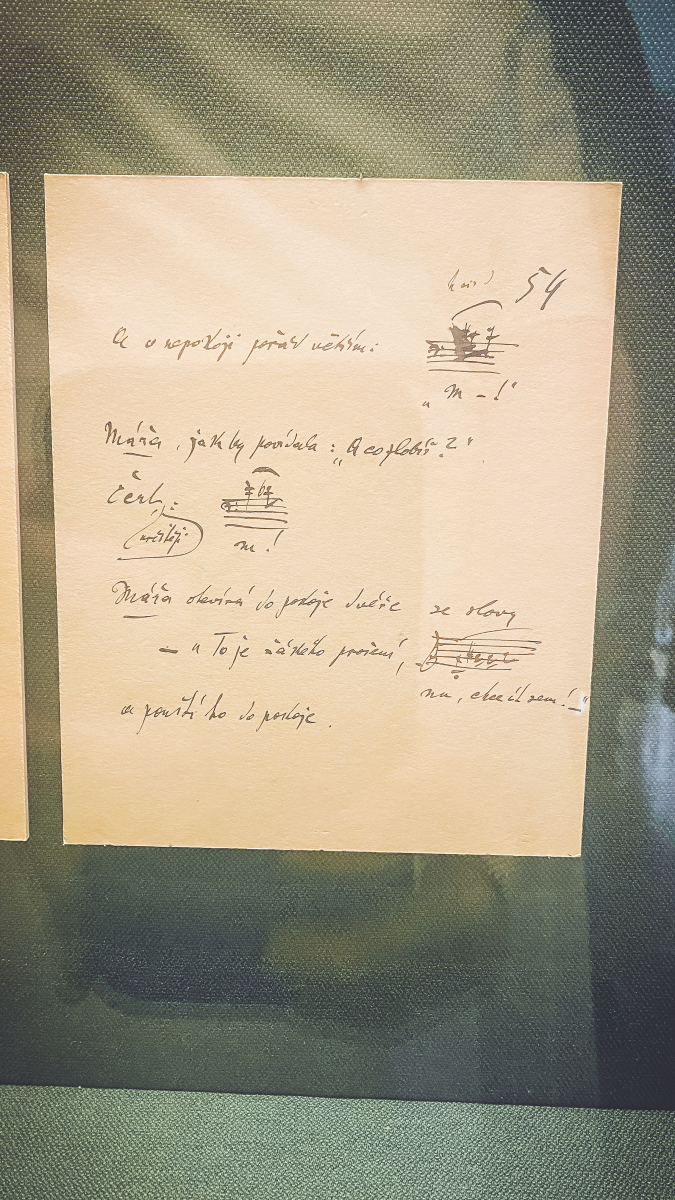 54
A v nepokoji pořád větším:
„m - !"
Máňa, jak by povídala: „A co zlobíš?"
Čert
m!
Máňa otevírá do pokoje dveře ze slovy
— „To je nějakého prošení,
nu, chceš sem!"
a pouští ho do pokoje.